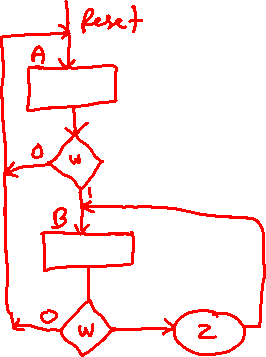 Reset
A
0 w
1
B
0 w z